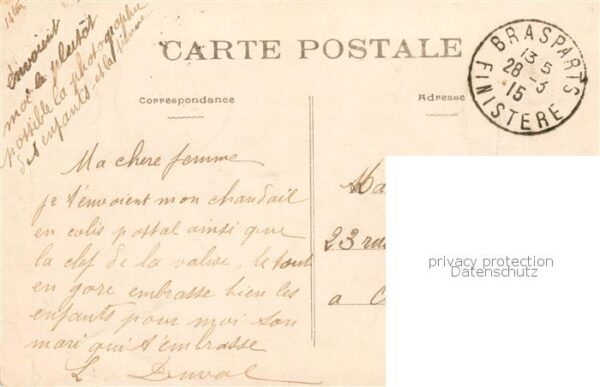 envoient
moi le plutôt
possible la photographie
des enfants et la tienne
CARTE POSTALE
BRASPARTS
13 5
28 -3
15
FINISTERE
Correspondance
Adresse
Ma chere femme
je t'envoient mon chandail
en colis postal ainsi que
la clef de la valise, le tout
en gare embrasse bien les
enfants pour moi son
mari qui t'embrasse
L Duval
23 rue
a
privacy protection
Datenschutz